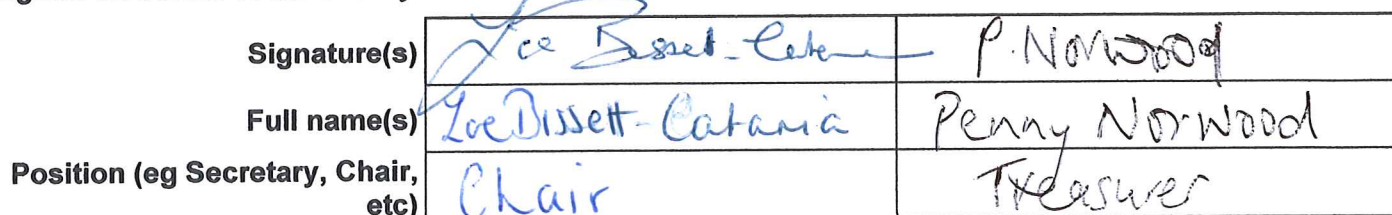 Signature(s) Zoe Bisset-Catania P. Norwood
Full name(s) Zoe Bissett-Catania Penny Norwood
Position (eg Secretary, Chair, etc) Chair Treasurer